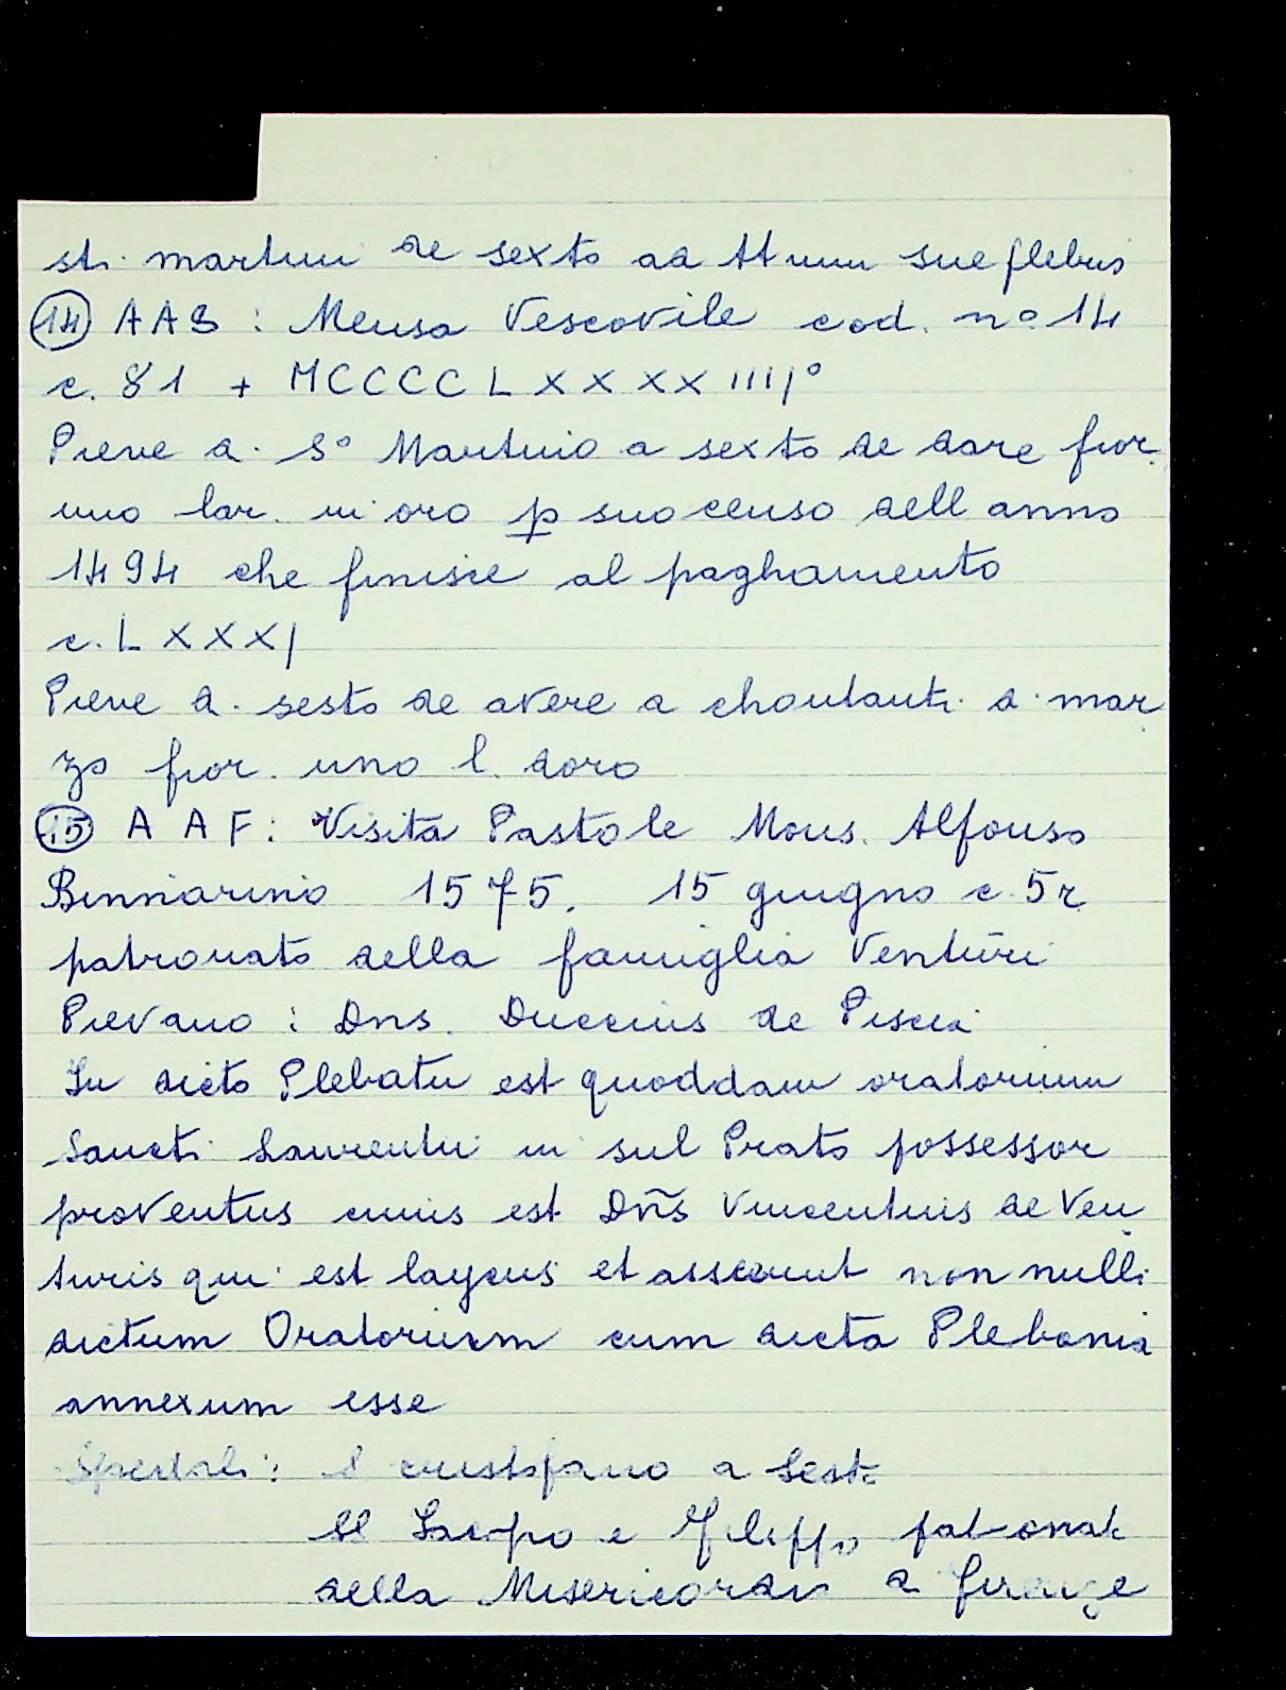 sti martini de sexto ad ttum sue plebis
14 AAS: Mensa Vescovile cod. nº 14
c. 81 + MCCCCLXXXXIIIJº
Pieve d. Sº Martino a sexto de dare fior.
uno lar. in oro p suo censo dell anno
1494 che finisce al paghamento
c. LXXXJ
Pieve d. sesto de avere a chontanti d. mar
zo fior. uno l. doro
15 AAF: Visita Pastole Mons. Alfonso
Binniarino 1575. 15 giugno c. 5r
patronato della famiglia Venturi
Pievano: Dns. Duccius de Piscia
In dicto Plebatu est quoddam oratorium
Sancti Laurentii in sul Prato possessor
proventus cuius est Dñs Vincentius de Ven
turis qui est laycus et asserunt non nulli
dictum Oratorium cum dicta Plebania
annexum esse
Spedali: S cristofano a Sesto
SS Iacopo e Filippo patronat
della Misericordia d Firenze